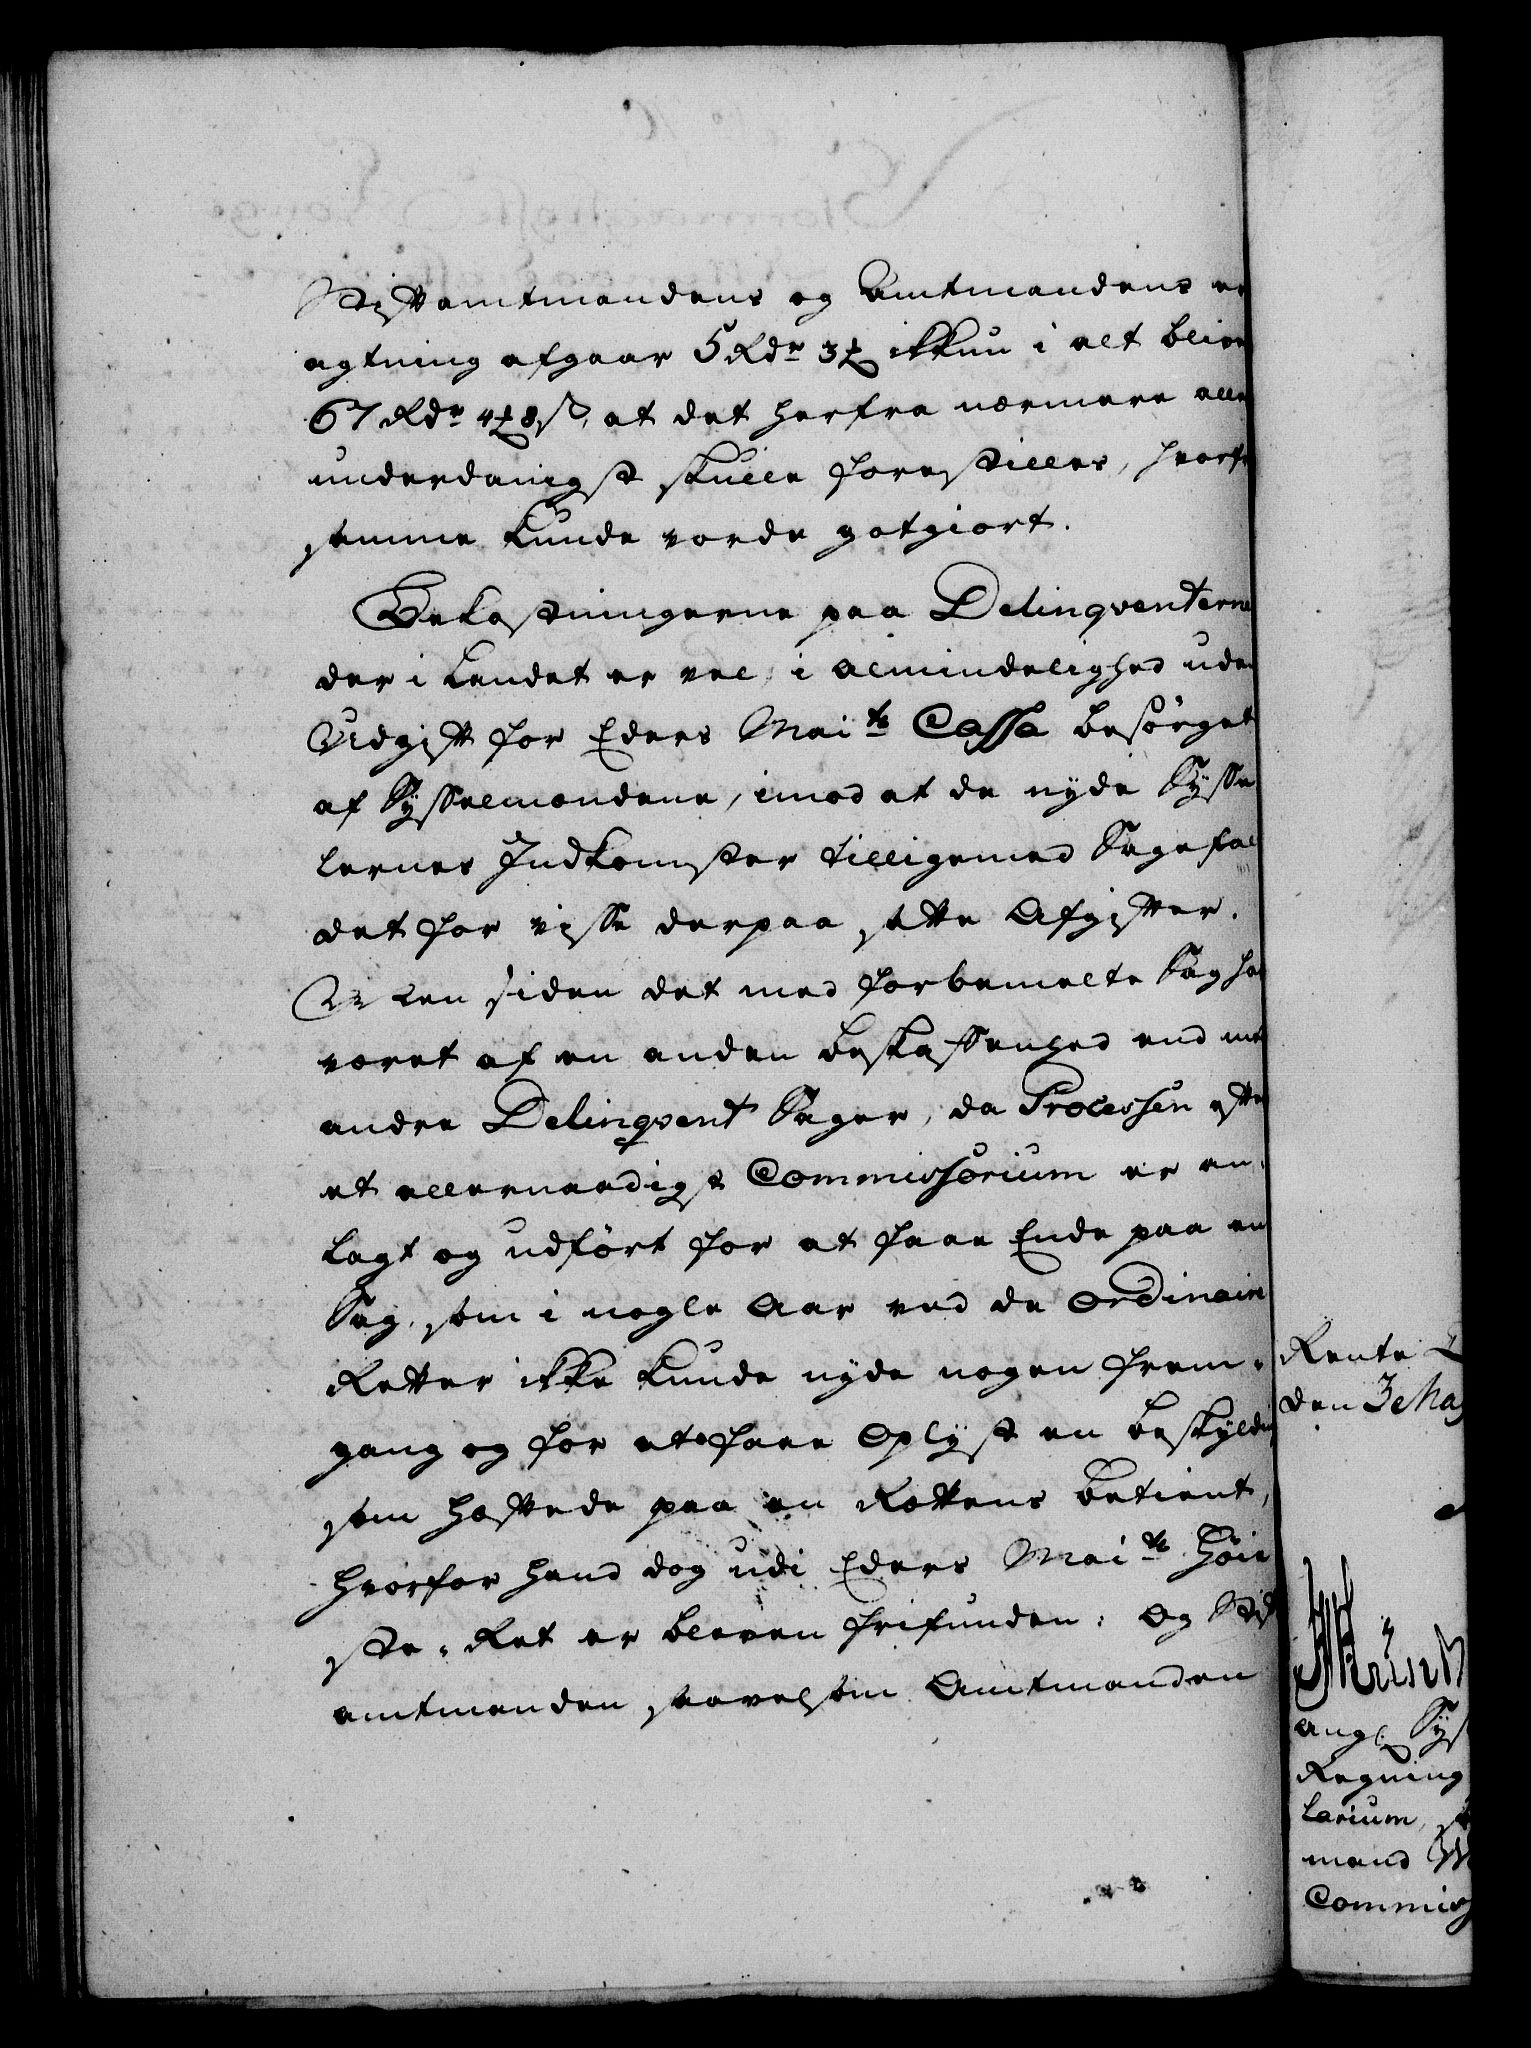 Stiftamtmandens og Amtmandens er
agtning afgaar 5 Rdr 3 ℔ ikkun i alt bliver
67 Rdr 4 ℔ 8 ß, at det herfra nærmere aller
underdanigst skulle forestilles, hvorfra
samme kunde vorde gotgiort.
Bekostningerne paa Delinqventerne
der i Landet er vel i Almindelighed uden
Udgift for Eders Maits Cassa besørget
af Sysselmændene, imod at de nyde Sysse
lernes Indkomster tilligemed Sagefal
det for visse derpaa satte Afgifter.
Men siden det med forbemelte Sag har
været af en anden Beskaffenhed end med
andre Delinqvent Sager, da Processen efter
et allernaadigst Commissorium er an-
lagt og udført for at faae Ende paa en
Sag, som i nogle Aar ved de ordinaire
Retter ikke kunde nyde nogen Frem-
gang og for at faae Oplyst en Beskyldn
som hæftede paa en Rettens Betient,
hvorfor hand dog udi Eders Maits Høie
ste-Ret er bleven frifunden: Og Stift
amtmanden saavelsom Amtmanden
Rente
den 3 e Ma
ang: Sys
Regning
larium,
mand
Commiss